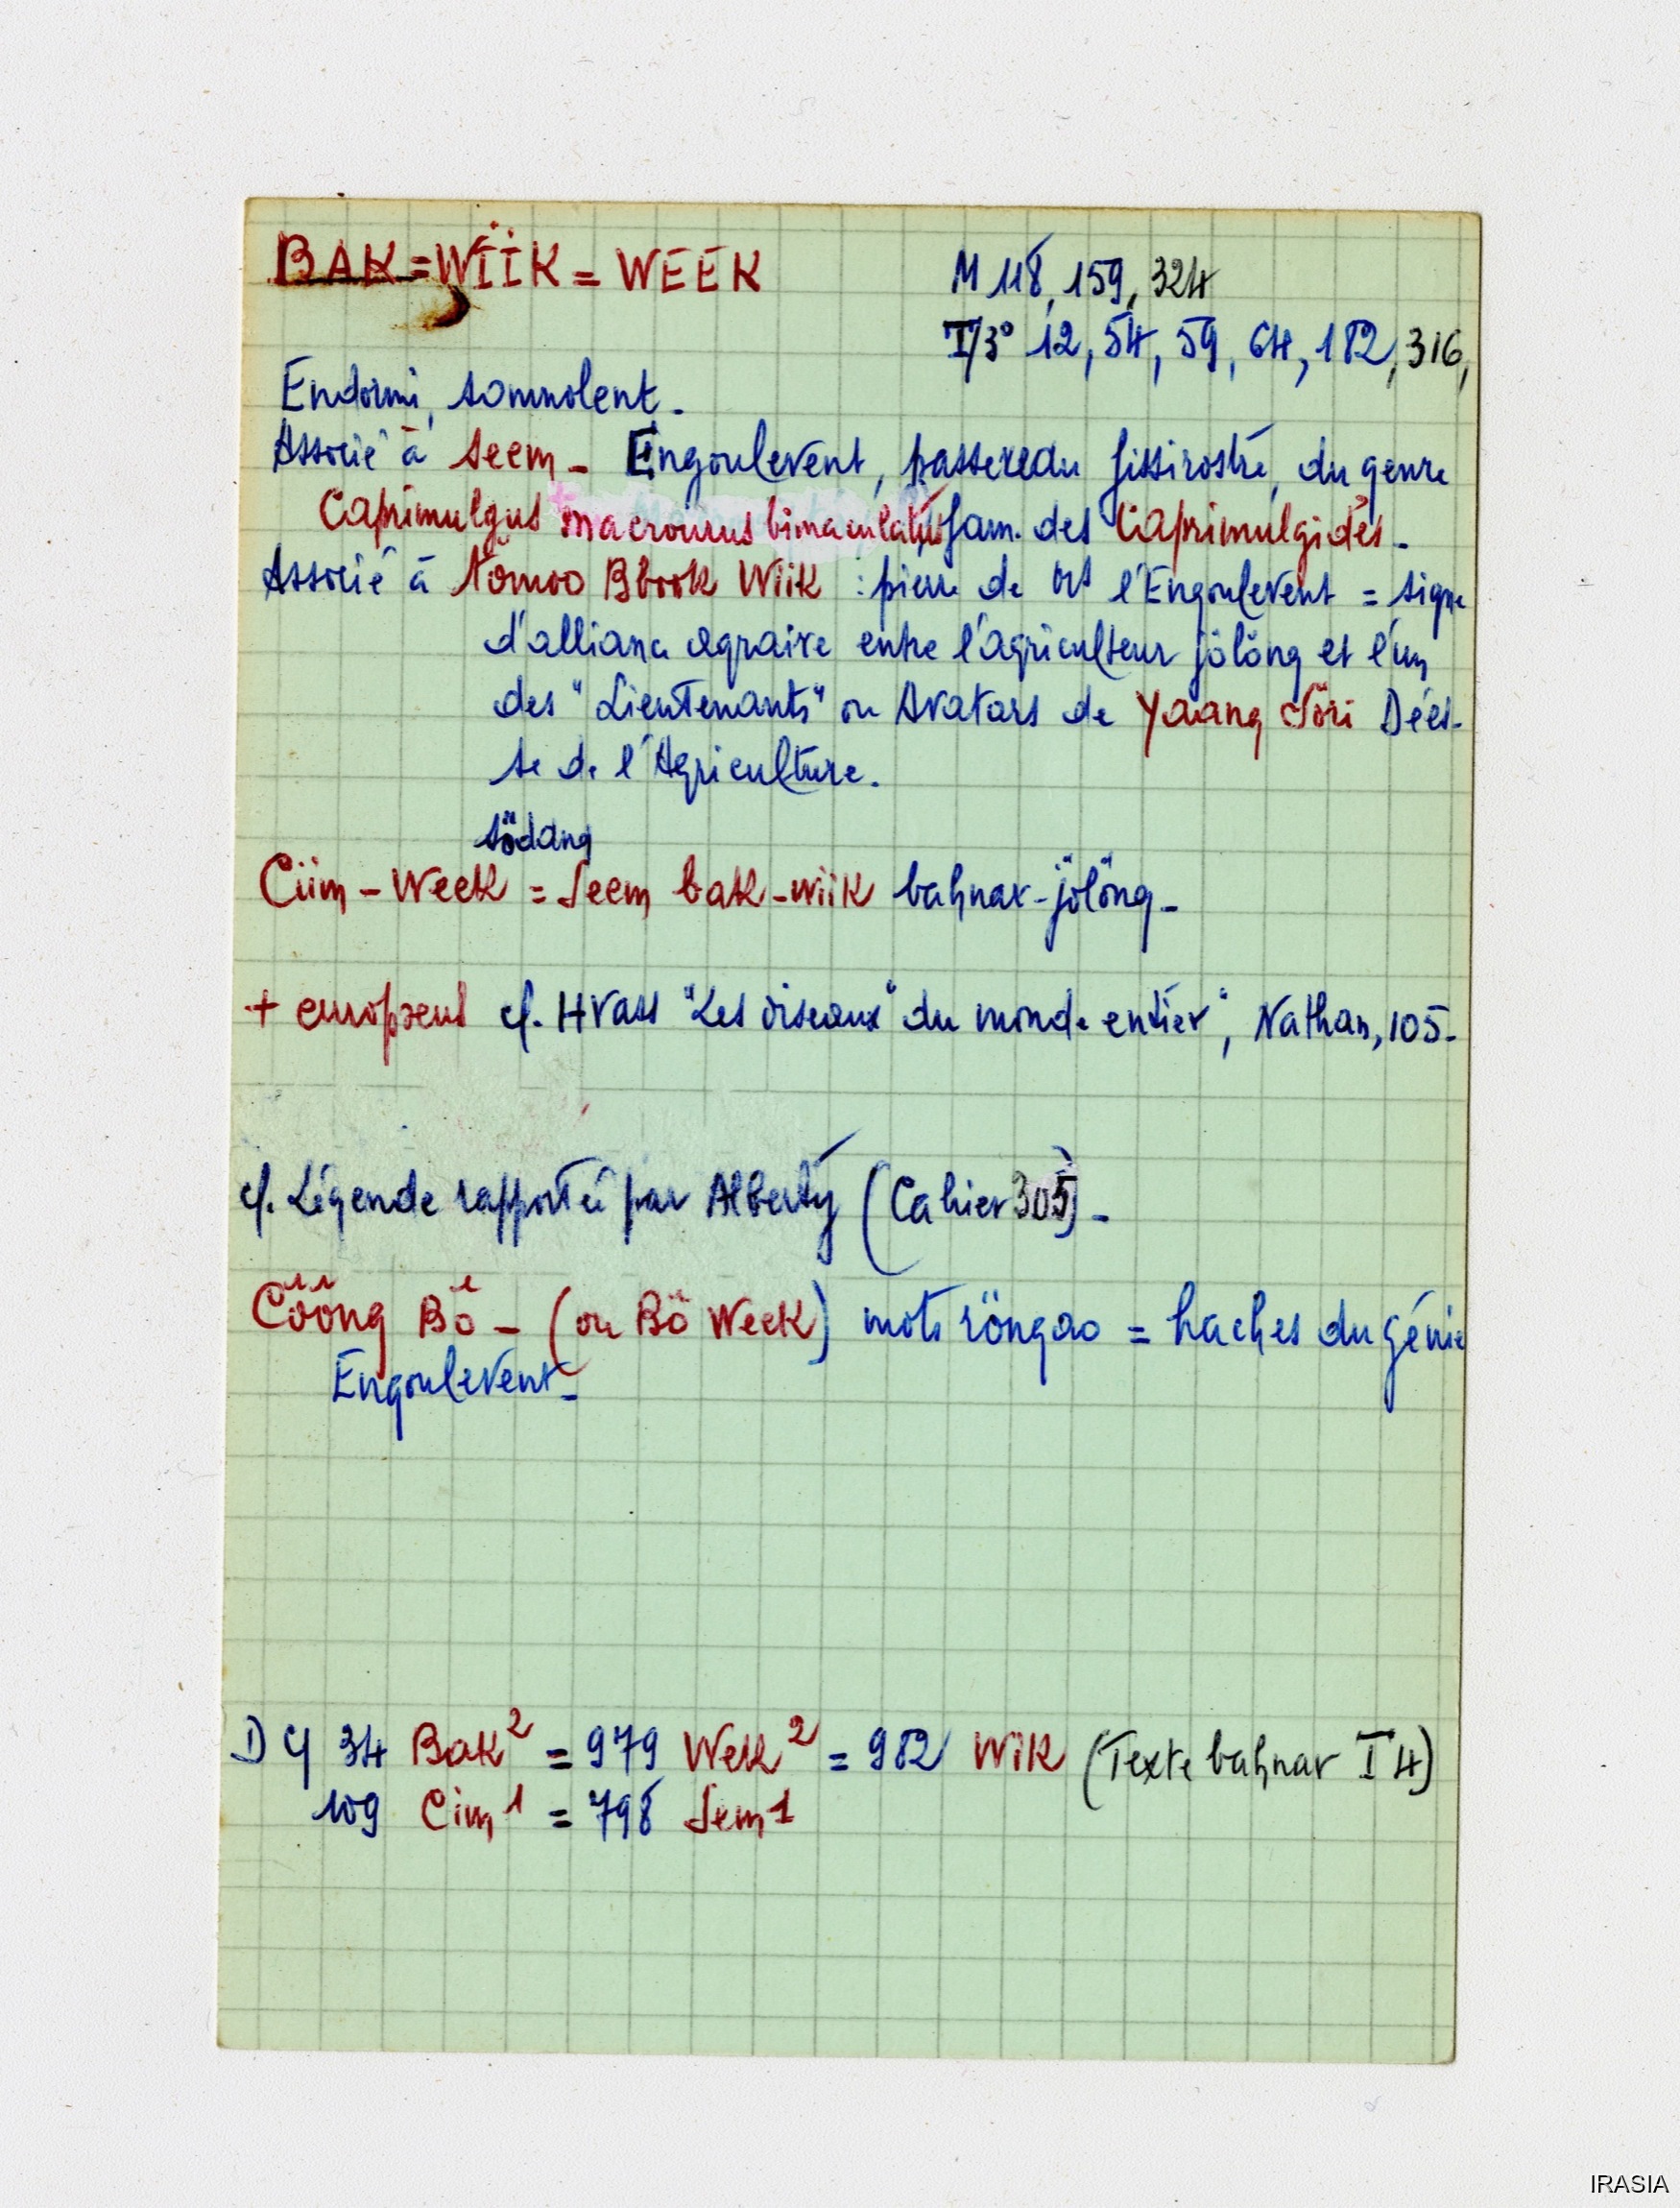 BAK = WĬĬK = WEEK
M 118, 159, 324
I/3° 12, 54, 59, 64, 182, 316,
Endormi, somnolent.
Associé à seem - Engoulevent, passereau fissirostre, du genre
Caprimulgus macrourus bimaculatus fam. des Caprimulgidés.
Associé à tömoo Bbook Wiik : pierre de l'Engoulevent = signe
d'alliance agraire entre l'agriculteur jölöng et l'un
des "Lieutenants" ou Avatars de Yaang Söri Dées-
se de l'Agriculture.
södang
Ciim - Week = Seem bak-wiik bahnar-jölöng -
+ europaeus cf. Hvass "Les oiseaux du monde entier", Nathan, 105.
cf. Légende rapportée par Alberty (Cahier 305) -
Cööng Bö - (ou Bö Week) mots röngao = haches du génie
Engoulevent -
D cf 34 Bak² = 979 Wek² = 982 Wik (Texte bahnar I 4)
109 Cim¹ = 798 Sem1
IRASIA